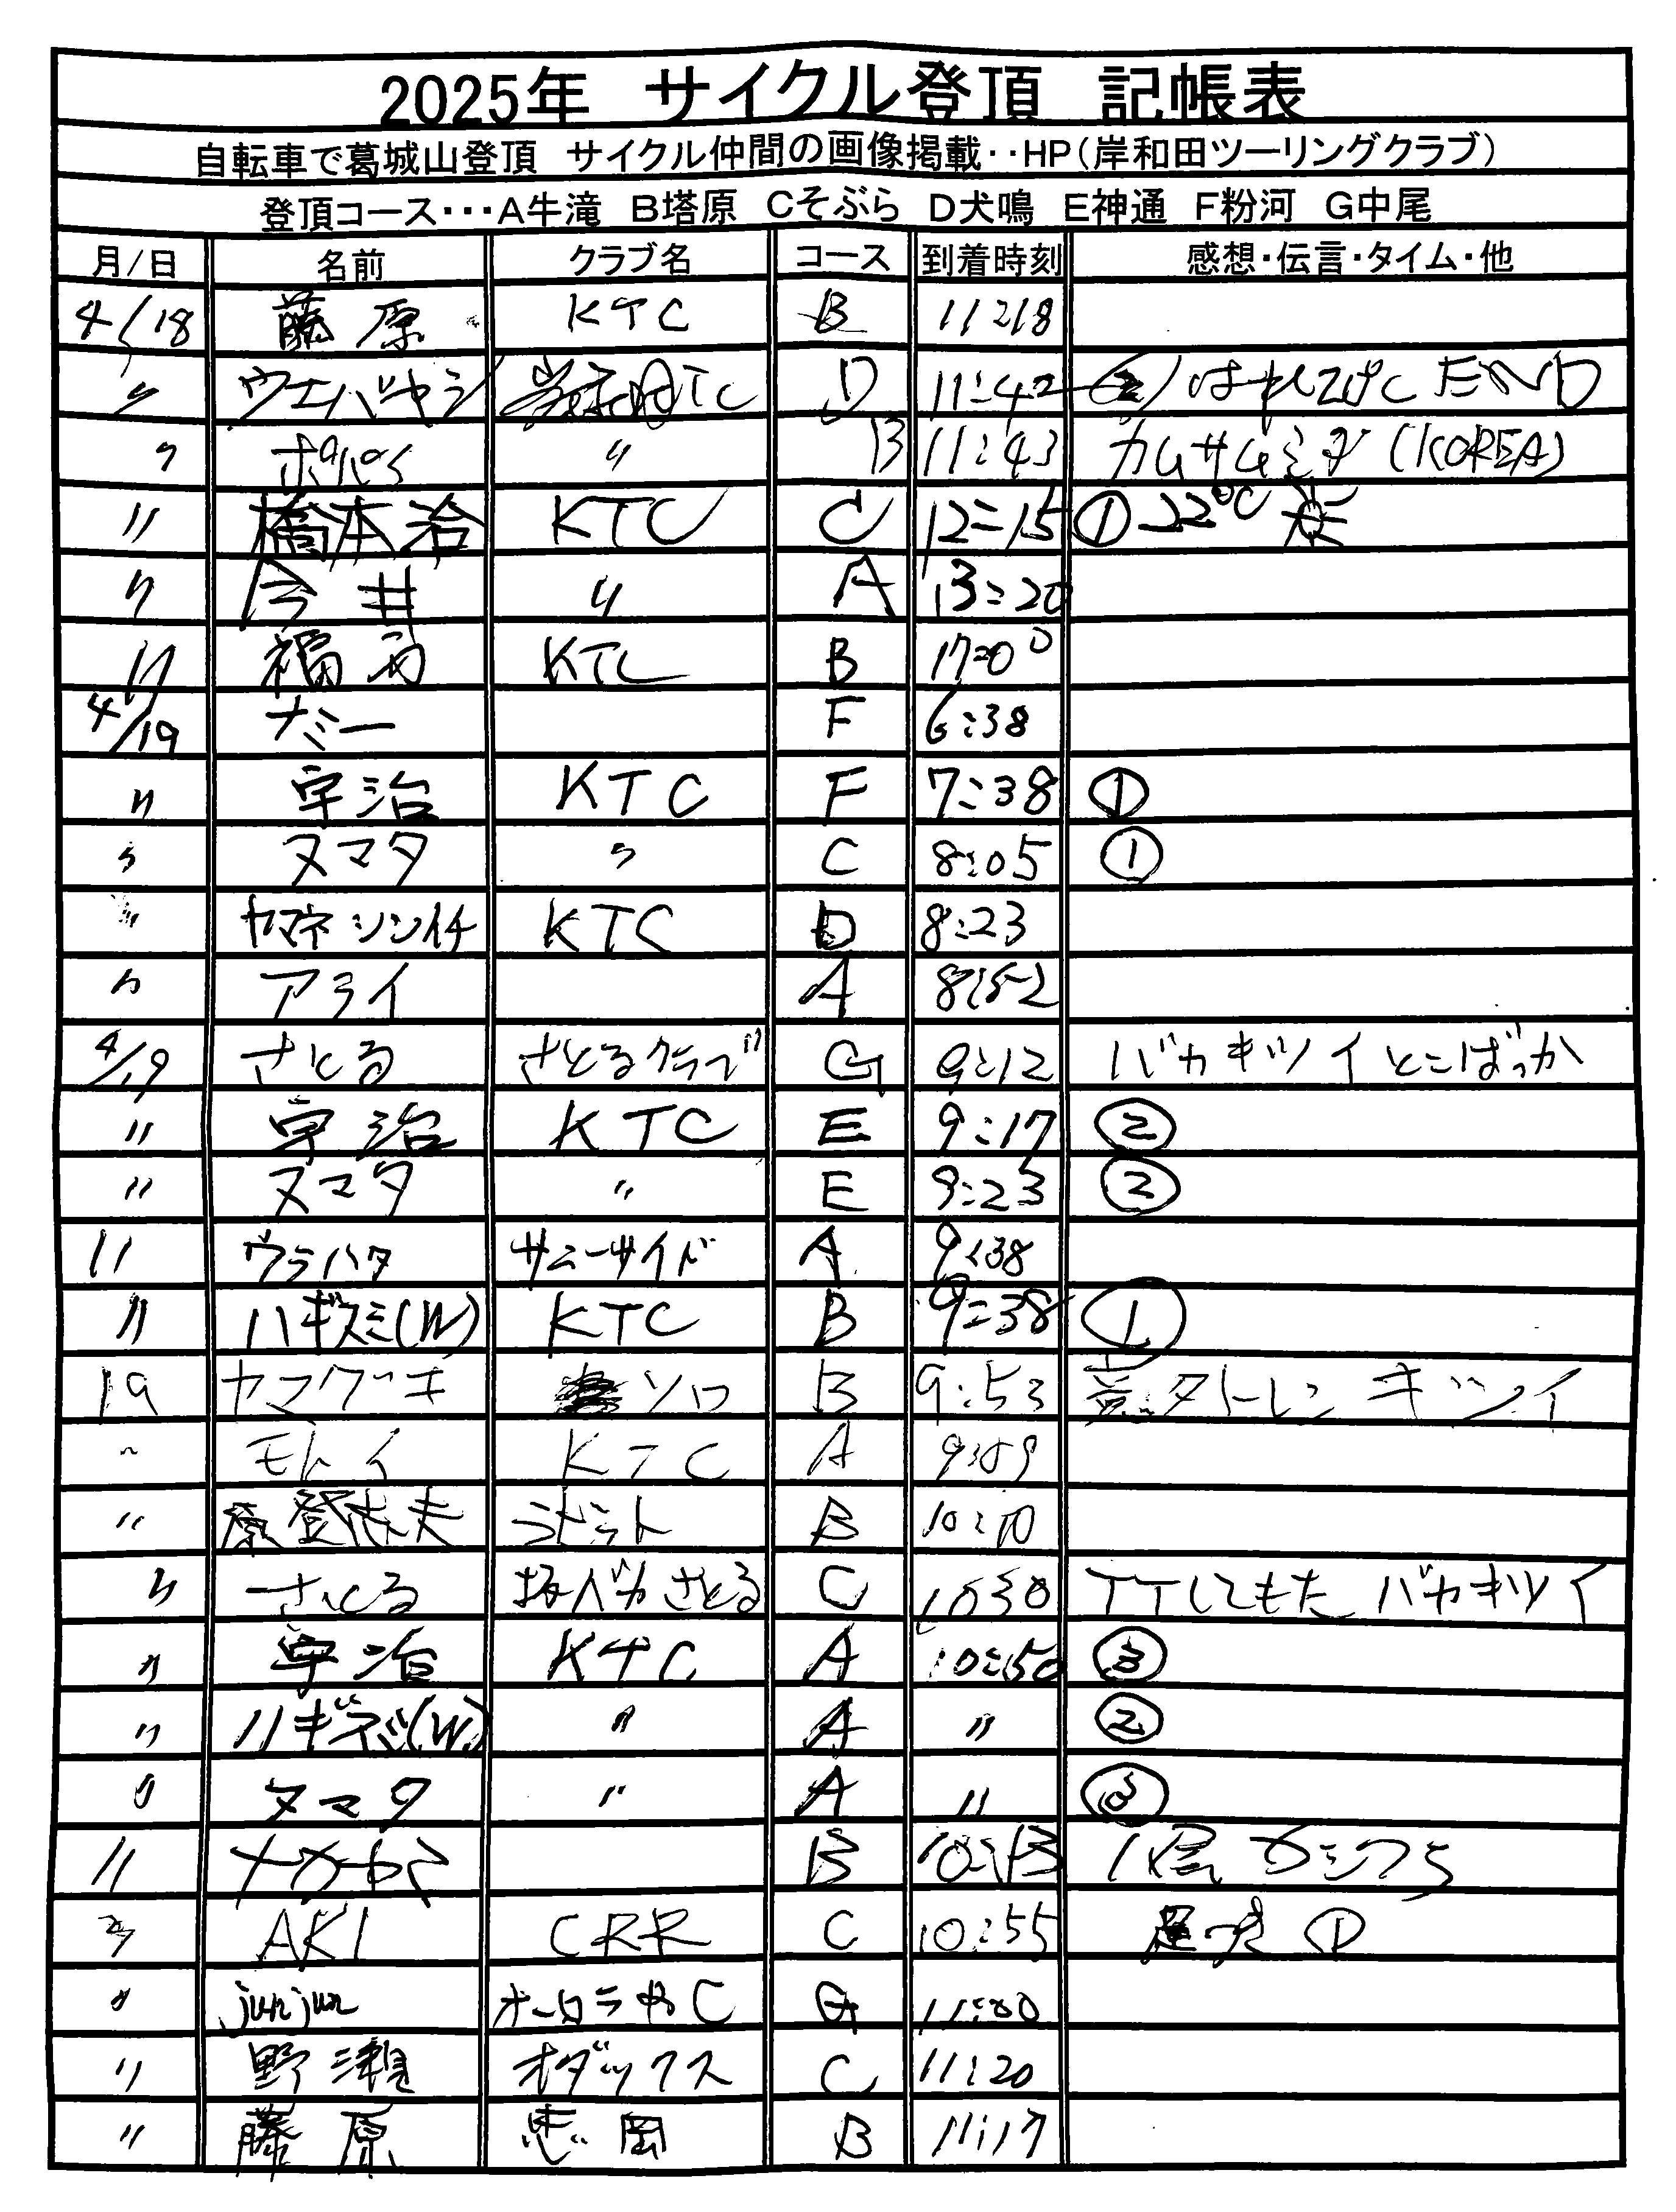 2025年 サイクル登頂 記帳表
自転車で葛城山登頂 サイクル仲間の画像掲載‥HP(岸和田ツーリングクラブ)
登頂コース･･･A牛滝 B塔原 Cそぶら D犬鳴 E神通 F粉河 G中尾
月/日 名前 クラブ名 コース 到着時刻 感想・伝言・タイム・他
4/18 藤原 KTC B 11:18
〃 ウエバヤシ TC D 11:42 END
〃 ポパイ 〃 B 11:43 カムサムミダ (KOREA)
〃 橋本治 KTC C 12:15 ① 22℃
〃 今井 〃 A 13:20
〃 福西 KTC B 17:00
4/19 ナミー F 6:38
〃 宇治 KTC F 7:38 ①
〃 ヌマタ 〃 C 8:05 ①
〃 ヤマネ シンイチ KTC D 8:23
〃 アライ A 8:52
4/19 さとる さとるクラブ G 9:12 バカキツイとこばっか
〃 宇治 KTC E 9:17 ②
〃 ヌマタ 〃 E 9:23 ②
〃 ウラハタ サニーサイド A 9:38
〃 ハギスミ(W) KTC B 9:38 ①
19 ヤマグキ ソロ B 9:53 タトレン キツイ
〃 モトイ KTC A 9:59
〃 原登志夫 ラビット B 10:10
〃 さとる 坂バカさとる C 1030 TTしてもた バカキツイ
〃 宇治 KTC A 10:50 ③
〃 ハギスミ(W) 〃 A 〃 ②
〃 ヌマタ 〃 A 〃 ③
〃 B 10:13
〃 AKI CRR C 10:55 ①
〃 junjun オーロラやC G 11:00
〃 野瀬 オダックス C 11:20
〃 藤原 B 11:17